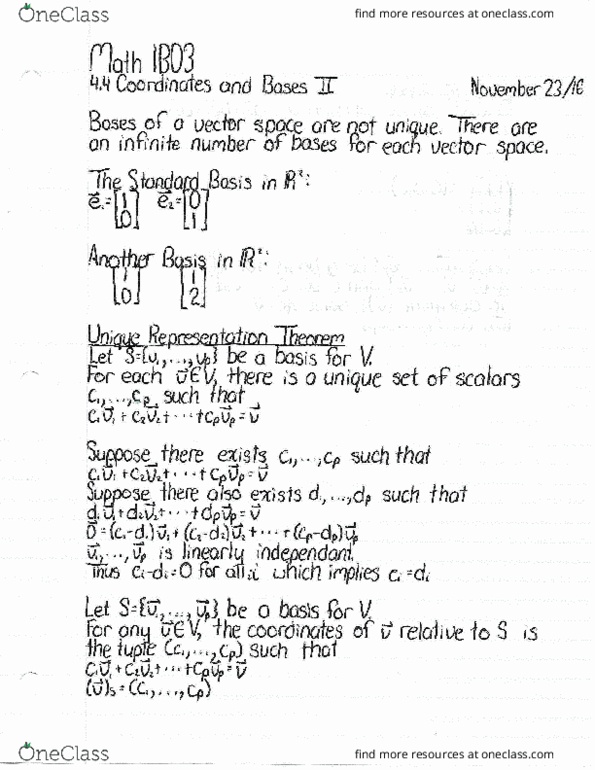 OneClass
find more resources at oneclass.com
Math 1B03
4.4 Coordinates and Bases II
November 23/16
Bases of a vector space are not unique. There are
an infinite number of bases for each vector space.
The Standard Basis in ℝ²:
e⃗₁=[1 0] e⃗₂=[0 1]
Another Basis in ℝ²:
[1 0] [1 2]
Unique Representation Theorem
Let S={v₁,...,vₚ} be a basis for V.
For each v⃗∈V, there is a unique set of scalars
c₁,...,cₚ such that
c₁v⃗₁+c₂v⃗₂+···+cₚv⃗ₚ=v⃗
Suppose there exists c₁,...,cₚ such that
c₁v⃗₁+c₂v⃗₂+···+cₚv⃗ₚ=v⃗
Suppose there also exists d₁,...,dₚ such that
d₁v⃗₁+d₂v⃗₂+···+dₚv⃗ₚ=v⃗
0⃗=(c₁-d₁)v⃗₁+(c₂-d₂)v⃗₂+···+(cₚ-dₚ)v⃗ₚ
v⃗₁,...,v⃗ₚ is linearly independant.
Thus cᵢ-dᵢ=0 for all i which implies cᵢ=dᵢ
Let S={v⃗₁,...,v⃗ₚ} be a basis for V.
For any v⃗∈V, the coordinates of v⃗ relative to S is
the tuple (c₁,...,cₚ) such that
c₁v⃗₁+c₂v⃗₂+···+cₚv⃗ₚ=v⃗
(v⃗)ₛ=(c₁,...,cₚ)
OneClass
find more resources at oneclass.com